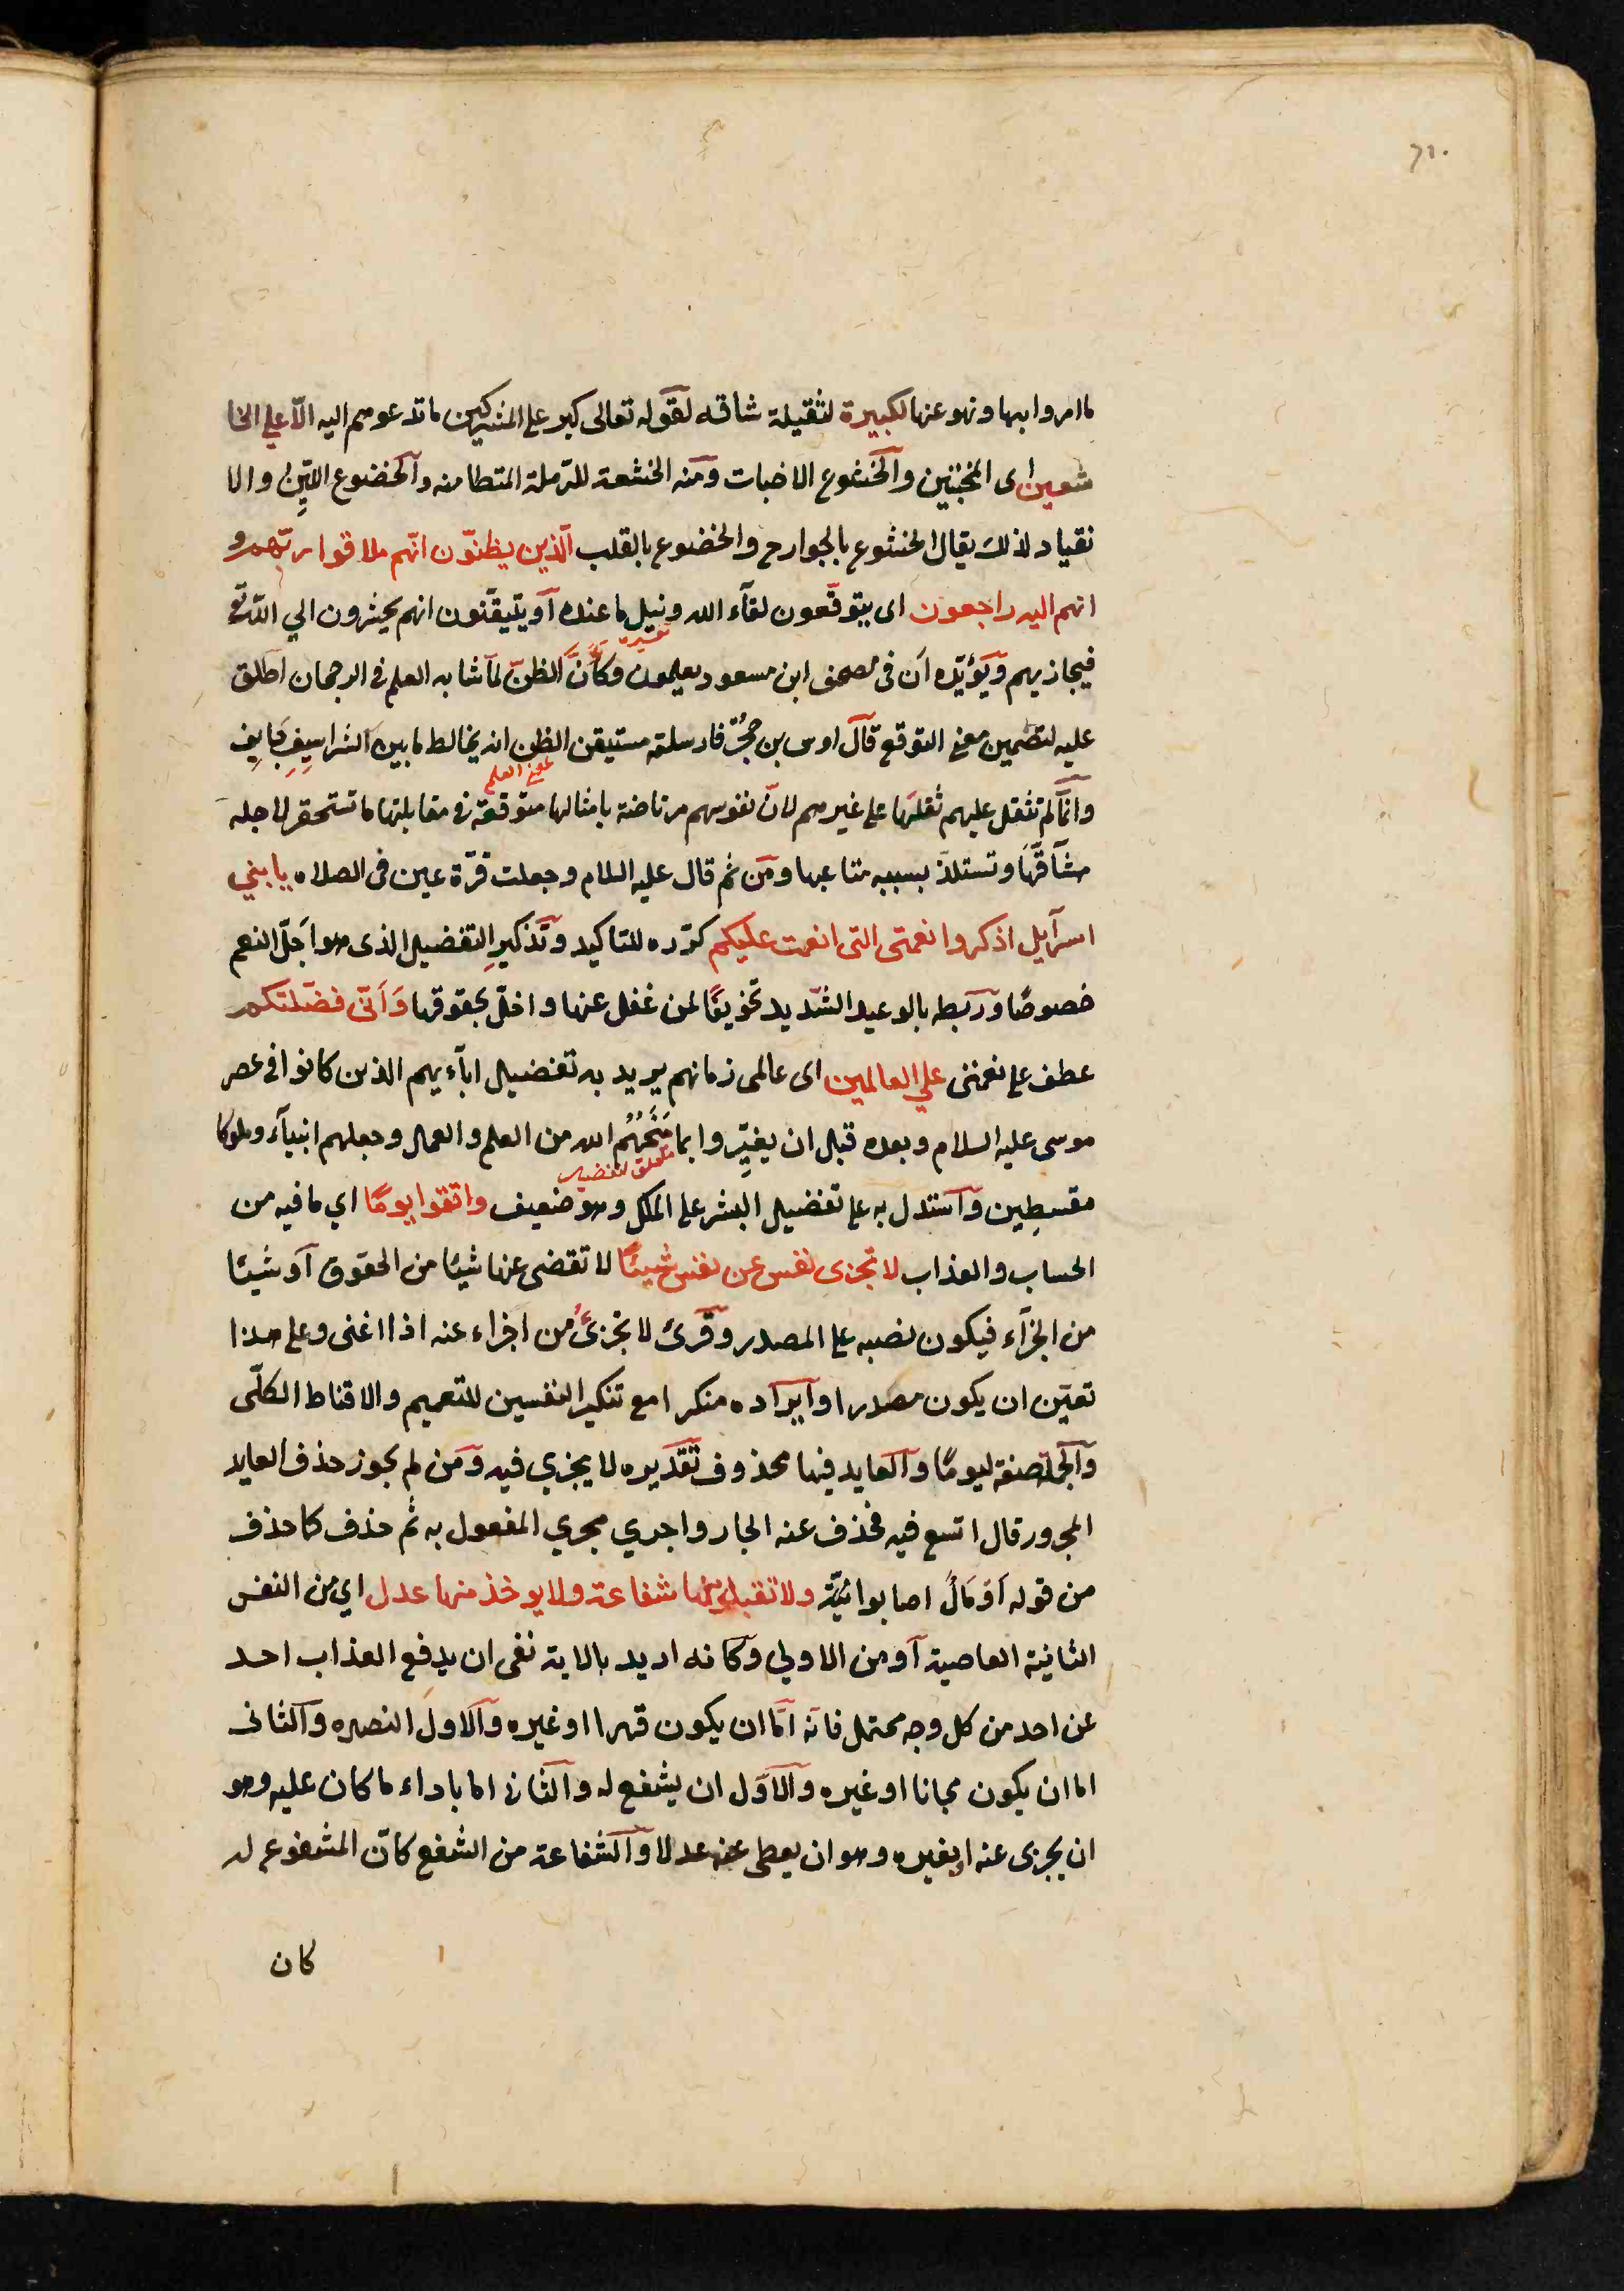 ٦١٠
ما امروا بها ونهو عنها لكبيرة لثقيلة شاقه لقوله تعالى كبر على المشركين ما تدعوهم اليه الّا علي الخا
شعين اى المخبتين والخشوع الاخبات ومنه الخشعة للرّملة المتطامنه والخضوع اللّيِن والا
نقياد لذلك يقال الخشوع بالجوارح والخضوع بالقلب الّذين يظنّون انّهم ملاقوا ربّهم و
انهم اليه راجعون اى يتوقّعون لقآء الله ونيل ما عنده او يتيقّنون انهم يحشرون الي اللّه تع
فيجازيهم ويؤيّده اَن فى مصحف ابن مسعود يعلمون وكاَنَّ الظنّ لمّا شابه العلم فى الرجحان اطلق
عليه لتضمين معنى التوقع قال اوس بن حُجُر فارسلته مستيقن الظن انه مخالط ما بين الشراسيفِ جَايفِ
بمعنى العلم
وانّما لم تثقل عليهم ثقلها على غيرهم لانّ نفوسهم مرتاضة بامثالها متوقعة فى مقابلتها ما تستحقر لاجله
مشآقّها وتستلذّ بسببه متاعبها ومن ثم قال عليه السلام وجعلت قرّة عين فى الصلاه يا بني
اسرآيل اذكروا نعمتى التى انعمت عليكم كرّره للتاكيد وتذكيرِ التفضيل الذى هو اَجلّ النعم
خصوصًا وربطه بالوعيد الشّديد تخويفًا لمن غفل عنها واخلّ بحقوقها وَاَنّى فضّلتكم
عطف على نعمتى علي العالمين اى عالمى زمانهم يريد به تفضيل ابآءيهم الذين كانوا فى عصر
موسى عليه السلام وبعده قبل ان يغيّروا بما مَنَحَهُمُ الله من العلم والعمل وجعلهم انبيآء وملوكا
متعلق لتفضيل
مقسطِين واستدل به على تفضيل البشر على الملك وهو ضعيف واتقوا يومًا اي ما فيه من
الحساب والعذاب لا تجزى نفس عن نفس شيئًا لا تقضى عنها شيئا من الحقوق او شيئا
من الجزآء فيكون نصبه على المصدر وقرئ لا تجزئُ من اجزاء عنه اذا اغنى وعلى هذا
تعيّن ان يكون مصدرا وايراده منكرا مع تنكير النفسين للتعميم والاقناط الكلّى
والجملة صفة ليومًا والعايد فيها محذوف تقديره لا يجزي فيه ومن لم يجوز حذف العايد
المجرور قال اتسع فيه فحذف عنه الجار واجري مجري المفعول به ثم حذف كما حذف
من قوله اَوْ مَالٌ اصابوا ايّة ولا تقبل منها شفاعة ولا يوخذ منها عدل اي من النفس
الثانية العاصية او من الاولي وكانه اريد بالاية نفى ان يدفع العذاب احد
عن احد من كل وجه محتمل فانّه امّا ان يكون قهرا او غيره والاول النصره والثانى
اما ان يكون مجانا او غيره والاوّل ان يشفع له والثانى اما باداء ما كان عليه وهو
ان يجزى عنه او بغيره وهو ان يعطى عنه عدلا والشفاعة من الشفع كانّ المشفوع له
كان